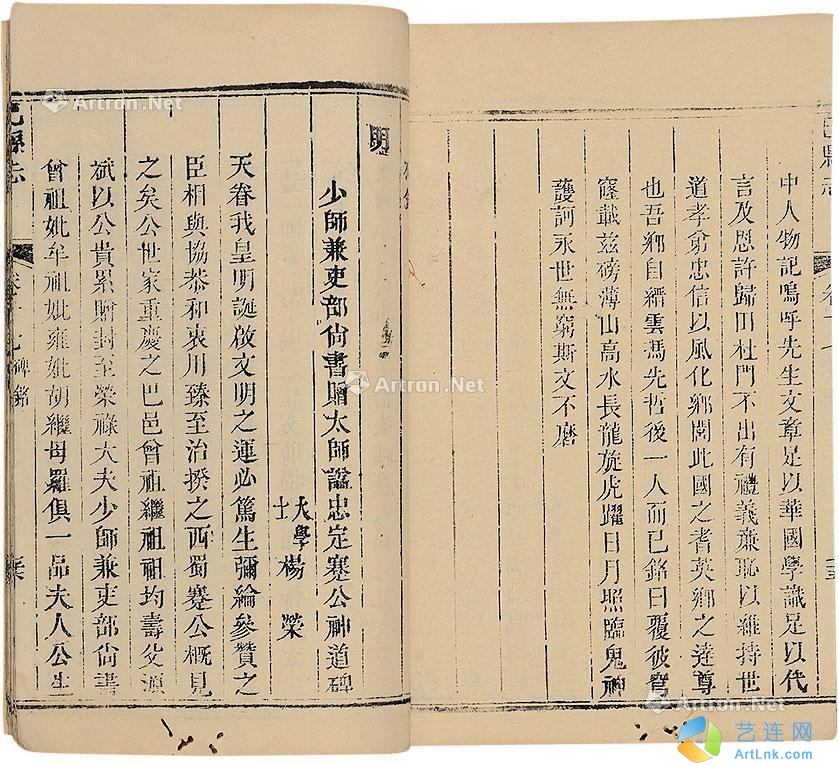 中人物記嗚呼先生文章足以華國學識足以代
言及恩許歸田杜門不出有禮義廉恥以維持世
道孝弟忠信以風化鄉閭此國之耆英鄉之達尊
也吾鄉自縉雲馮先哲後一人而已銘曰覆彼穹
窿載兹磅薄山高水長龍旋虎躍日月照臨鬼神
護訶永世無窮斯文不磨
明
少師兼吏部尚書贈太師諡忠定蹇公神道碑
大學士楊榮
天眷我皇明誕啟文明之運必篤生彌綸參贊之
臣相與協恭和衷用臻至治揆之西蜀蹇公槪見
之矣公世家重慶之巴邑曾祖繼祖祖均壽父源
斌以公貴累贈封至榮祿大夫少師兼吏部尚書
曾祖妣牟祖妣雍妣胡繼母羅俱一品夫人公生
巴縣志
卷十七 碑銘
Artron.Net
Artron.Net
Artron.Net
Artron.Net
Artron.Net
艺连网
ArtLnk.com